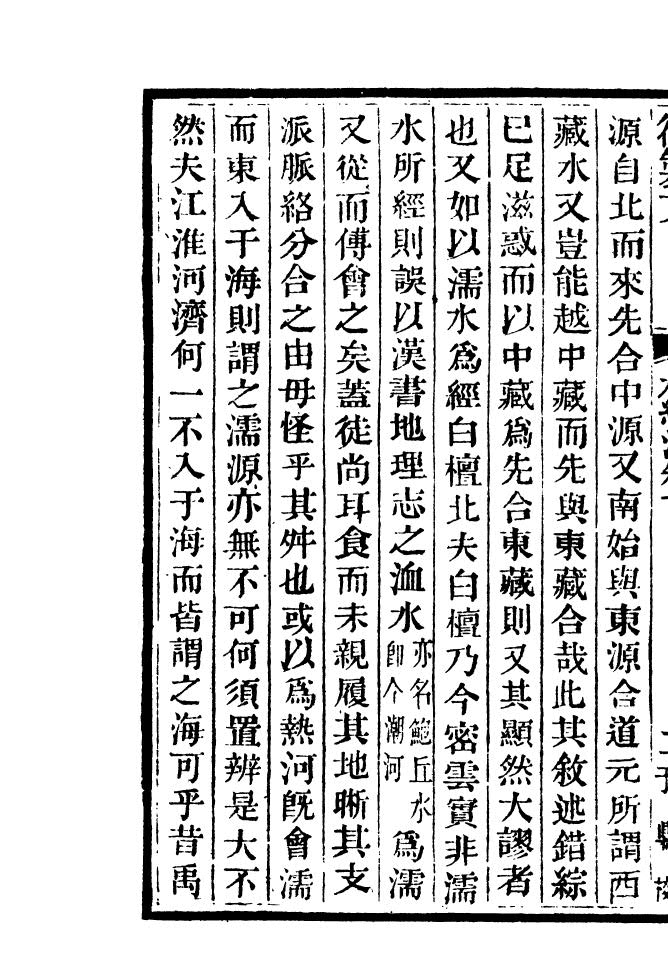 源自北而來先合中源又南始與東源合道元所謂西
藏水又豈能越中藏而先與東藏合哉此其敘述錯綜
已足滋惑而以中藏爲先合東藏則又其顯然大謬者
也又如以濡水爲經白檀北夫白檀乃今密雲實非濡
水所經則誤以漢書地理志之洫水亦名鮑丘水卽今潮河爲濡
又從而傅會之矣蓋徒尚耳食而未親履其地晰其支
派脈絡分合之由毋怪乎其舛也或以爲熱河旣會濡
而東入于海則謂之濡源亦無不可何須置辨是大不
然夫江淮河濟何一不入于海而皆謂之海可乎昔禹